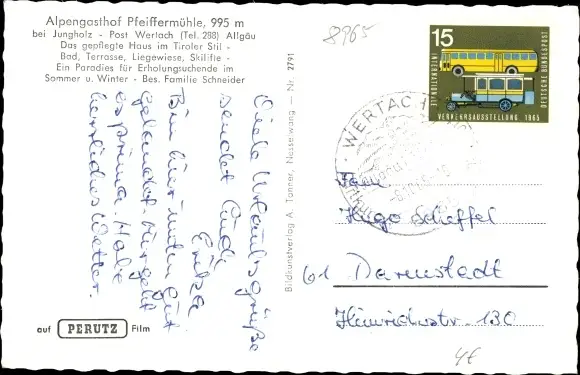 Alpengasthof Pfeiffermühle, 995 m
bei Jungholz - Post Wertach (Tel. 288) Allgäu
Das gepflegte Haus im Tiroler Stil -
Bad, Terrasse, Liegewiese, Skilifte -
Ein Paradies für Erholungsuchende im
Sommer u. Winter - Bes. Familie Schneider
8965
15
INTERNATIONALE
VERKEHRSAUSSTELLUNG 1965
DEUTSCHE BUNDESPOST
WERTACH
Viele Urlaubsgrüße
sendet Euch
Erika
Bin hier unten gut
gelandet. Mir geht
es prima. Habe
herrliches Wetter.
Bildkunstverlag A. Tanner, Nesselwang — Nr. 7791
Hugo Scheffel
61 Darmstadt
Heinrichstr. 130
auf PERUTZ Film
4€